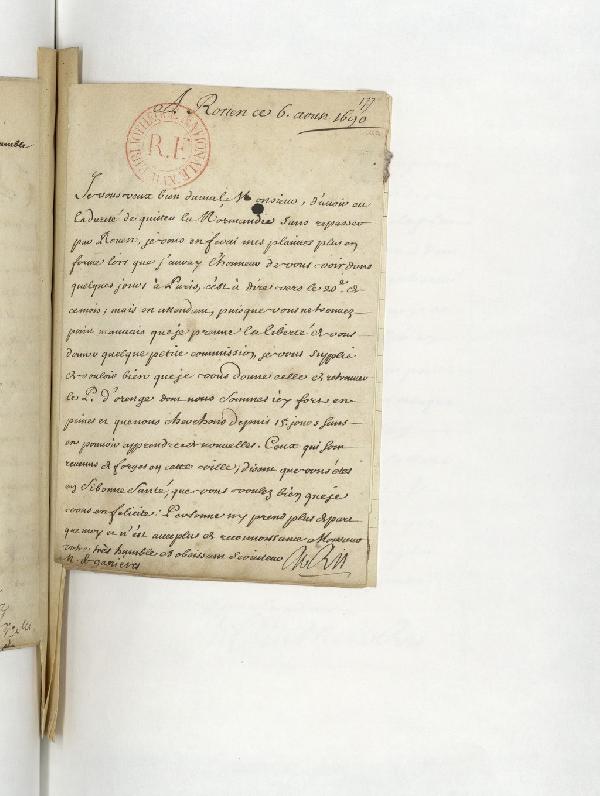 177
A Rouen ce 6. aoust 1690
BIBLIOTHEQUE NATIONALE
R.F.
Je vous veux bien du mal Monsieur, d'avoir eu
la dureté de quitter la Normandie sans repasser
par Rouen, je vous en ferai mes plaintes plus en
forme lors que j'auray l'honneur de vous voir dans
quelques jours à Paris, c'est à dire vers le 20e. de
ce mois; mais en attendant, puisque vous ne trouvez
point mauvais que je prenne la liberté de vous
donner quelque petite commission, je vous supplie
de vouloir bien que je vous donne celle de retrouver
le P. d'orenge dont nous sommes icy fort en
peines et que nous cherchons depuis 15 jours sans
en pouvoir apprendre de nouvelles. Ceux qui sont
revenus de forges en cette ville, disent que vous étes
en si bonne santé, que vous voulez bien que je
vous en felicite. Personne n'y prend plus de part
que moy et n'est avec plus de reconnoissance Monsieur
votre très humble et obeissant serviteur
M. de ganieres